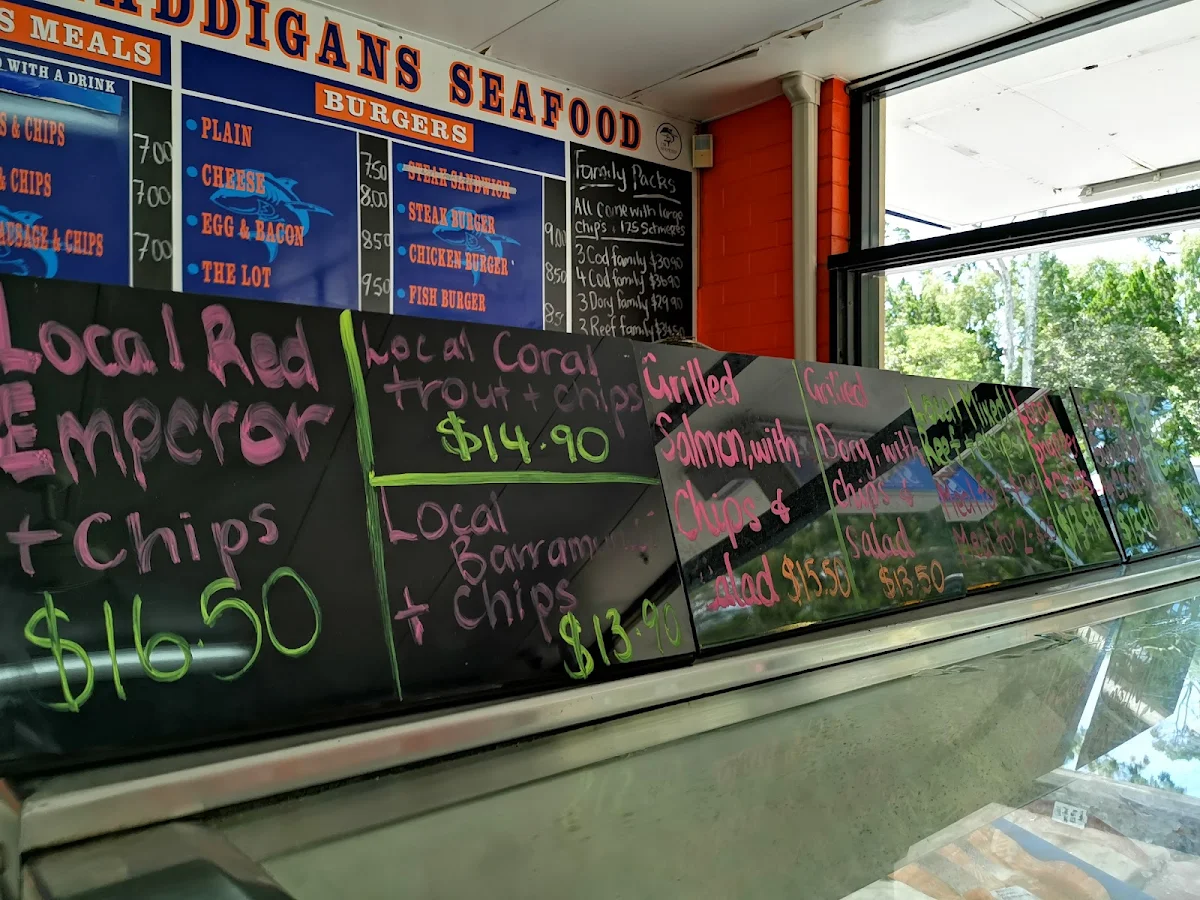 ADDIGANS SEAFOOD
S MEALS
WITH A DRINK
& CHIPS 7.00
& CHIPS 7.00
SAUSAGE & CHIPS 7.00
BURGERS
PLAIN 7.50
CHEESE 8.00
EGG & BACON 8.50
THE LOT 9.50
STEAK SANDWICH
STEAK BURGER 9.00
CHICKEN BURGER 8.50
FISH BURGER
Family Packs
All come with large
chips
3 Cod family $30.90
4 Cod family $36.90
3 Dory family $29.90
2 Reef family
Local Red
Emperor
+ Chips
$16.50
Local Coral
trout + chips
$14.90
Local
Barramundi
+ Chips
$13.90
Grilled
Salmon, with
Chips &
Salad $15.50
Grilled
Dory, with
chips &
Salad
$13.50
Local Mixed
Reef